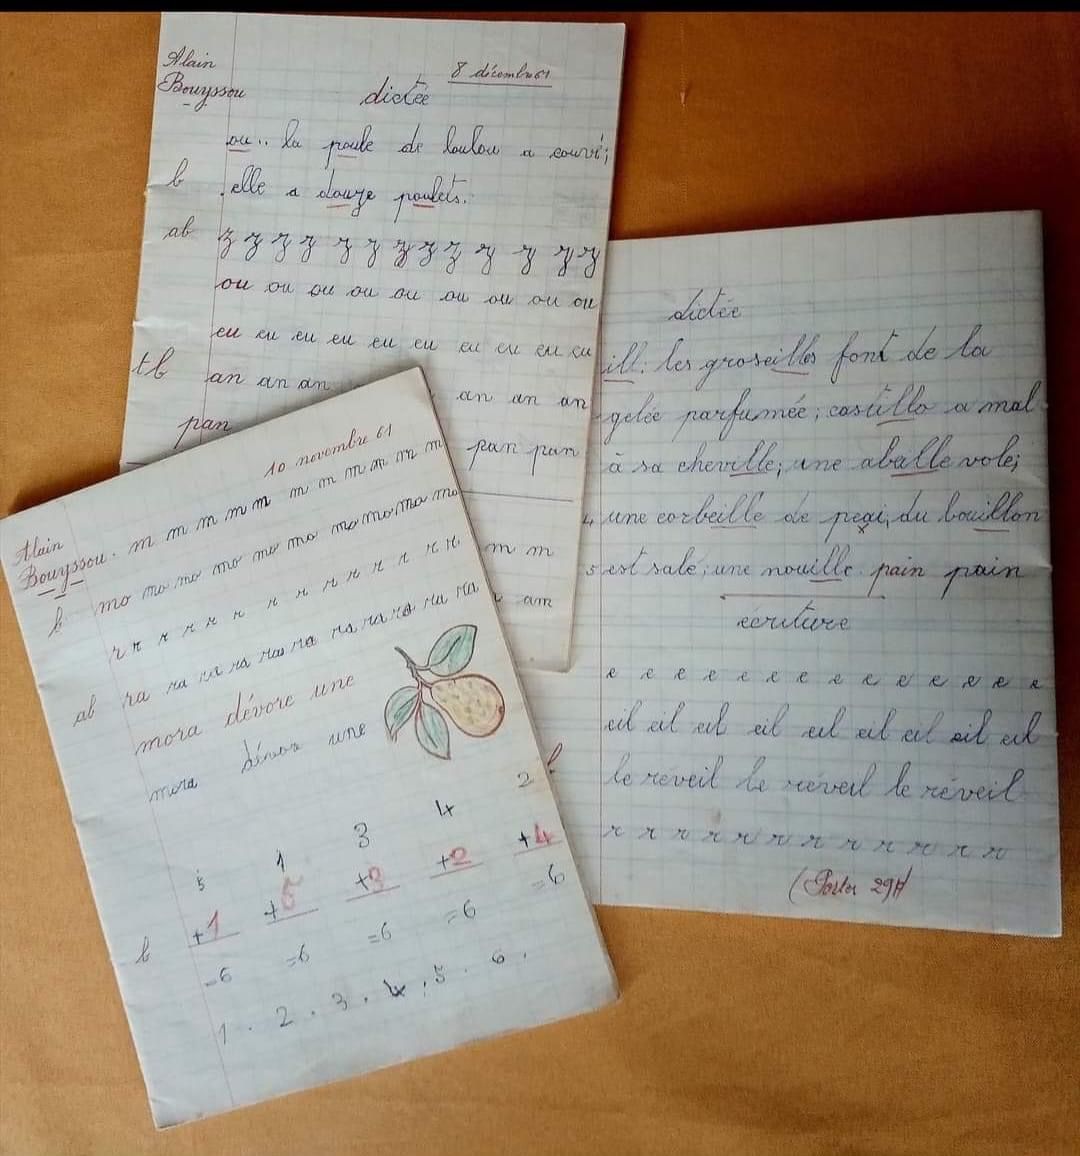 Alain
Bouyssou
8 décembre 61
dictée
ou.. la poule de loulou a couvé;
b
elle a douze poulets.
ab
z z z z z z z z z z z z z
ou ou ou ou ou ou ou ou ou
eu eu eu eu eu eu eu eu eu eu
tb
an an an an an an
pan
pan pan
m m
am
dictée
ill: les groseilles font de la
gelée parfumée; castillo a mal
à sa cheville; une abeille vole;
4 une corbeille de du bouillon
5 est salé; une nouille. pain pain
écriture
e e e e e e e e e e e e e e
eil eil eil eil eil eil eil eil eil
b
le réveil le réveil le réveil
r r r r r r r r r r r r
10 novembre 61
Alain
Bouyssou.
m m m m m m m m m m
b
mo mo mo mo mo mo mo mo mo mo
r r r r r r r r r r r r r
ab
ra ra ra ra ra ra ra ra ra ra ra
mora dévore une
mora une
5 1 3 4 2
+1 +5 +3 +2 +4
b
=6 =6 =6 =6 =6
1 . 2 . 3 . 4 . 5 . 6 .